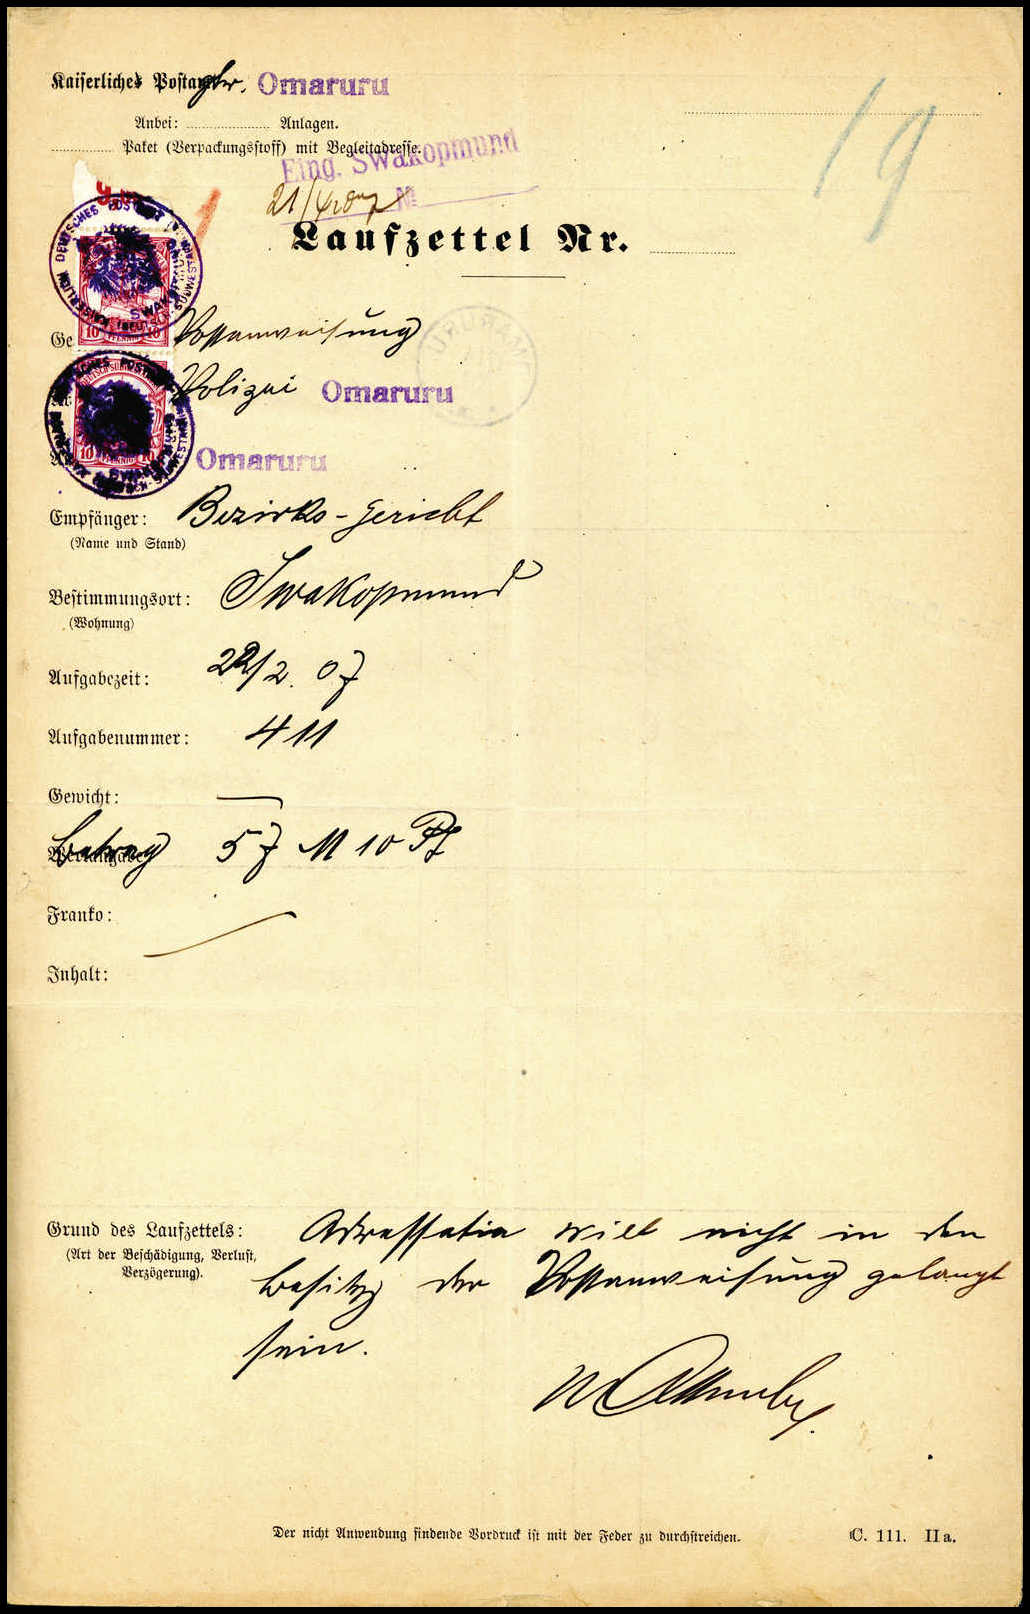 Kaiserliches Postamt Omaruru
19
Anbei: Anlagen.
Paket (Verpackungsstoff) mit Begleitadresse.
Eing. Swakopmund
No
Laufzettel Nr.
Ge Postanweisung
Polizei Omaruru
Omaruru
Empfänger: Bezirks-Gericht
(Name und Stand)
Bestimmungsort: Swakopmund
(Wohnung)
Aufgabezeit: 22/2. 07
Aufgabenummer: 411
Gewicht: —
Betrag 57 M 10 Pf
Franko:
Inhalt:
Grund des Laufzettels: Adressatin will nicht in den
(Art der Beschädigung, Verlust,
Verzögerung).
Besitz der Postanweisung gelangt
sein.
Der nicht Anwendung findende Vordruck ist mit der Feder zu durchstreichen.
C. 111. IIa.